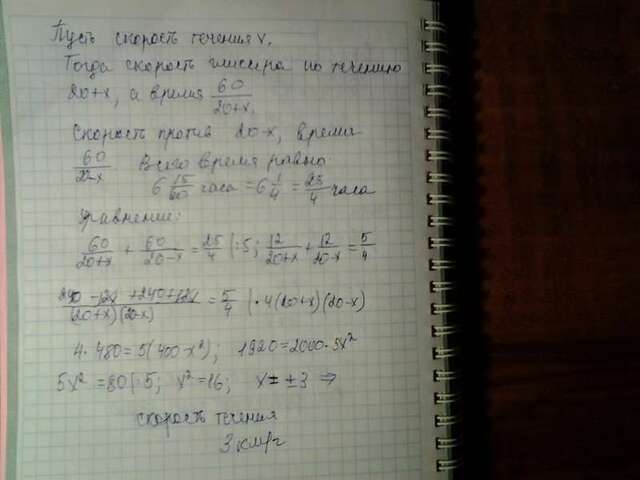 Пусть скорость течения v.
Тогда скорость глиссера по течению
20+x, а время 60/20+x.
Скорость против 20-x, время
60/20-x. Всего время равно
6 15/60 часа = 6 1/4 = 25/4 часа
Уравнение:
60/20+x + 60/20-x = 25/4 |:5; 12/20+x + 12/20-x = 5/4
240 -12x +240+12x/(20+x)(20-x) = 5/4 | · 4(20+x)(20-x)
4 · 480 = 5(400-x²); 1920 = 2000 - 5x²
5x² = 80 |:5; x² = 16; x = ±3 ⇒
скорость течения
3 км/ч